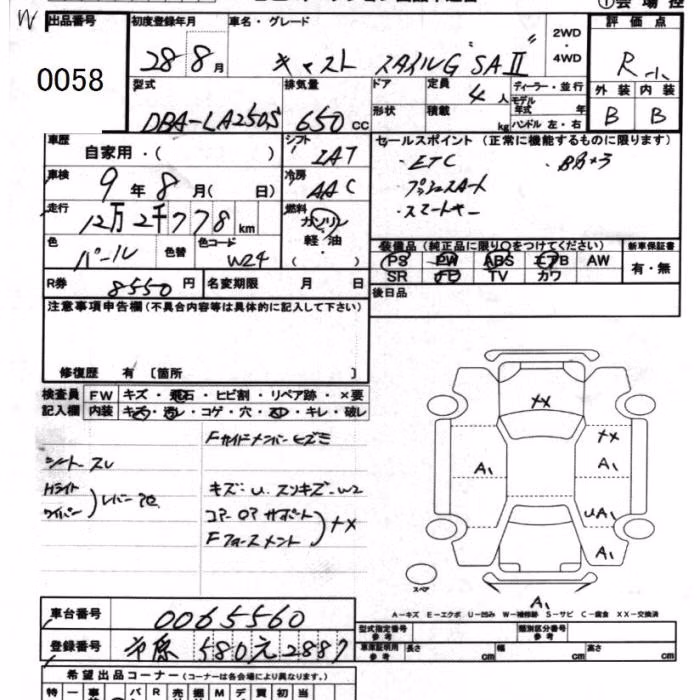 出品番号 初度登録年月 車名・グレード 2WD・4WD 評価点
0058 28 8月 キャスト スタイルG "SAⅡ" R小
型式 排気量 ドア 定員 ディーラー・並行 外装 内装
形状 積載 4人 モデル年式 年
DBA-LA250S 650cc kg ハンドル 左・右 B B
車歴 シフト セールスポイント(正常に機能するものに限ります)
自家用・( ) IAT ・ETC
車検 冷房 ・プッシュスタート
9年8月( 日) AAC ・スマートキー
走行 燃料
12万2千778km ガソリン・軽油・( )
色 パール 色替 色コード W24
装備品(純正品に限り○をつけてください) 新車保証書
PS PW ABS エアB AW 有・無
SR TV カワ
R券 8550円 名変期限 月 日 後日品
注意事項申告欄(不具合内容等は具体的に記入して下さい)
修復歴 有〔箇所 〕
検査員 FW キズ・飛石・ヒビ割・リペア跡・×要
記入欄 内装 コゲ・穴・キレ・破レ
シート スレ
Hライト
ワイパー
キズ・U、スリキズ・W2
コアーロアサポート
××
××
A1 A1
UA1
A1
スペア
A1
A-キズ E-エクボ U-凹み W-補修跡 S-サビ C-腐食 XX-交換済
車台番号 0065560 型式指定番号 参考 類別区分番号 参考
登録番号 市原 580 元 2887 車庫証明用 参考 長さ cm 幅 cm 高さ cm
希望出品コーナー(コーナーは各会場により異なります。)